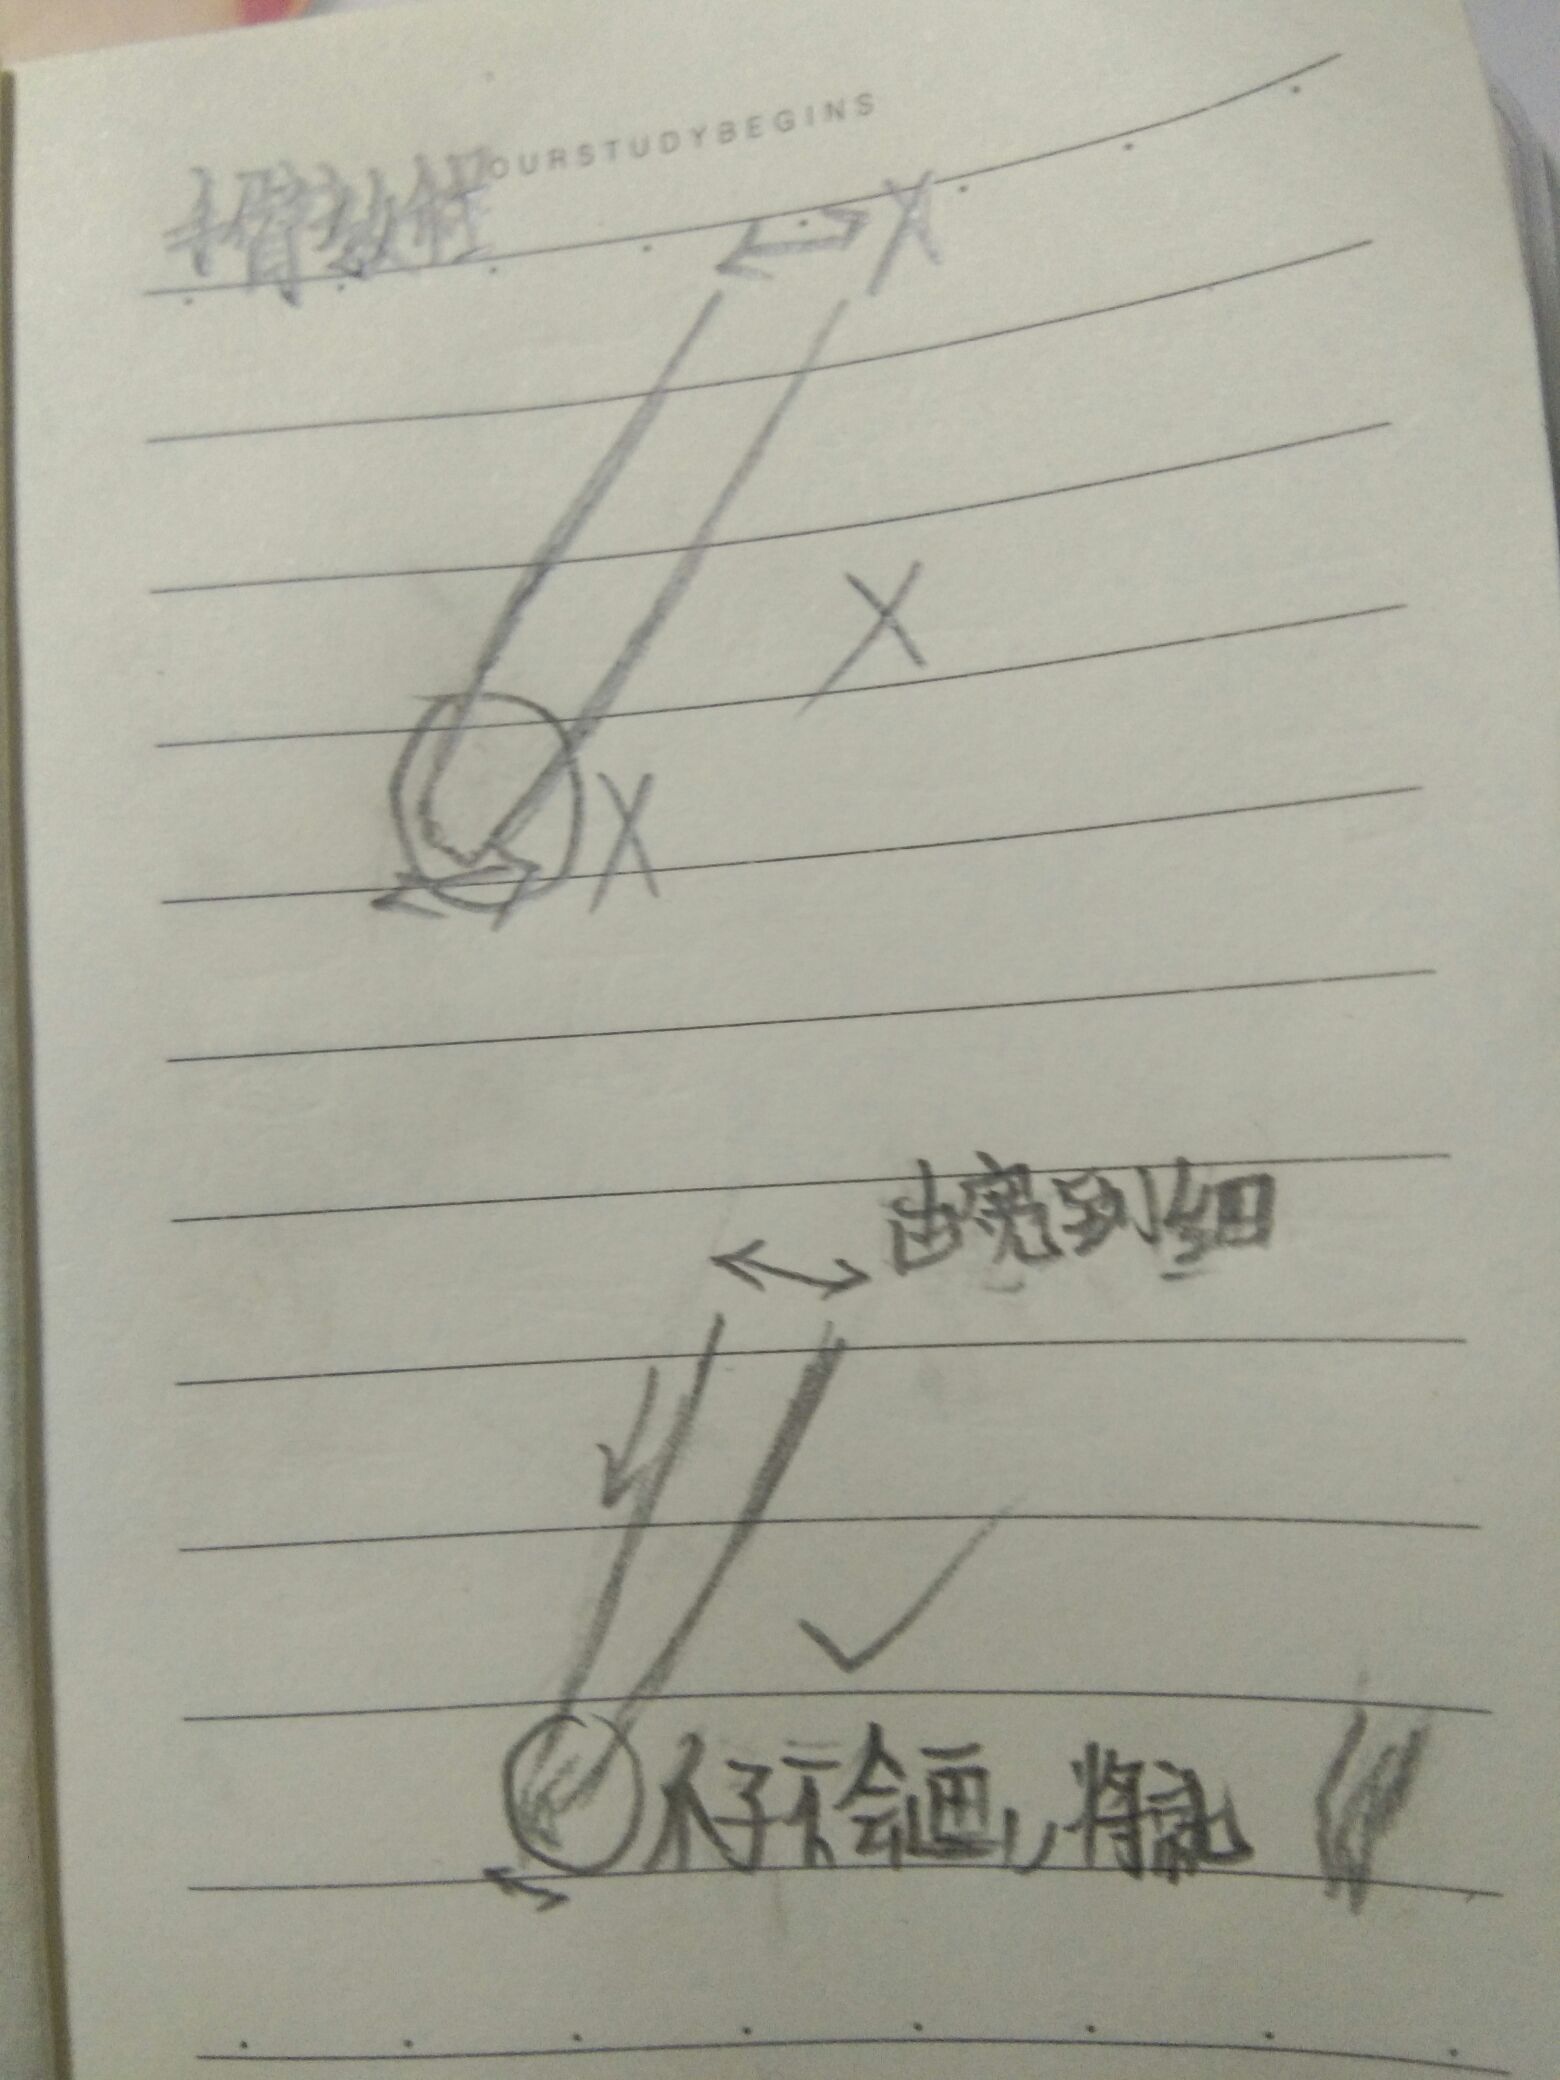 OURSTUDYBEGINS
手臂教程
由宽到细
子不会画，将就